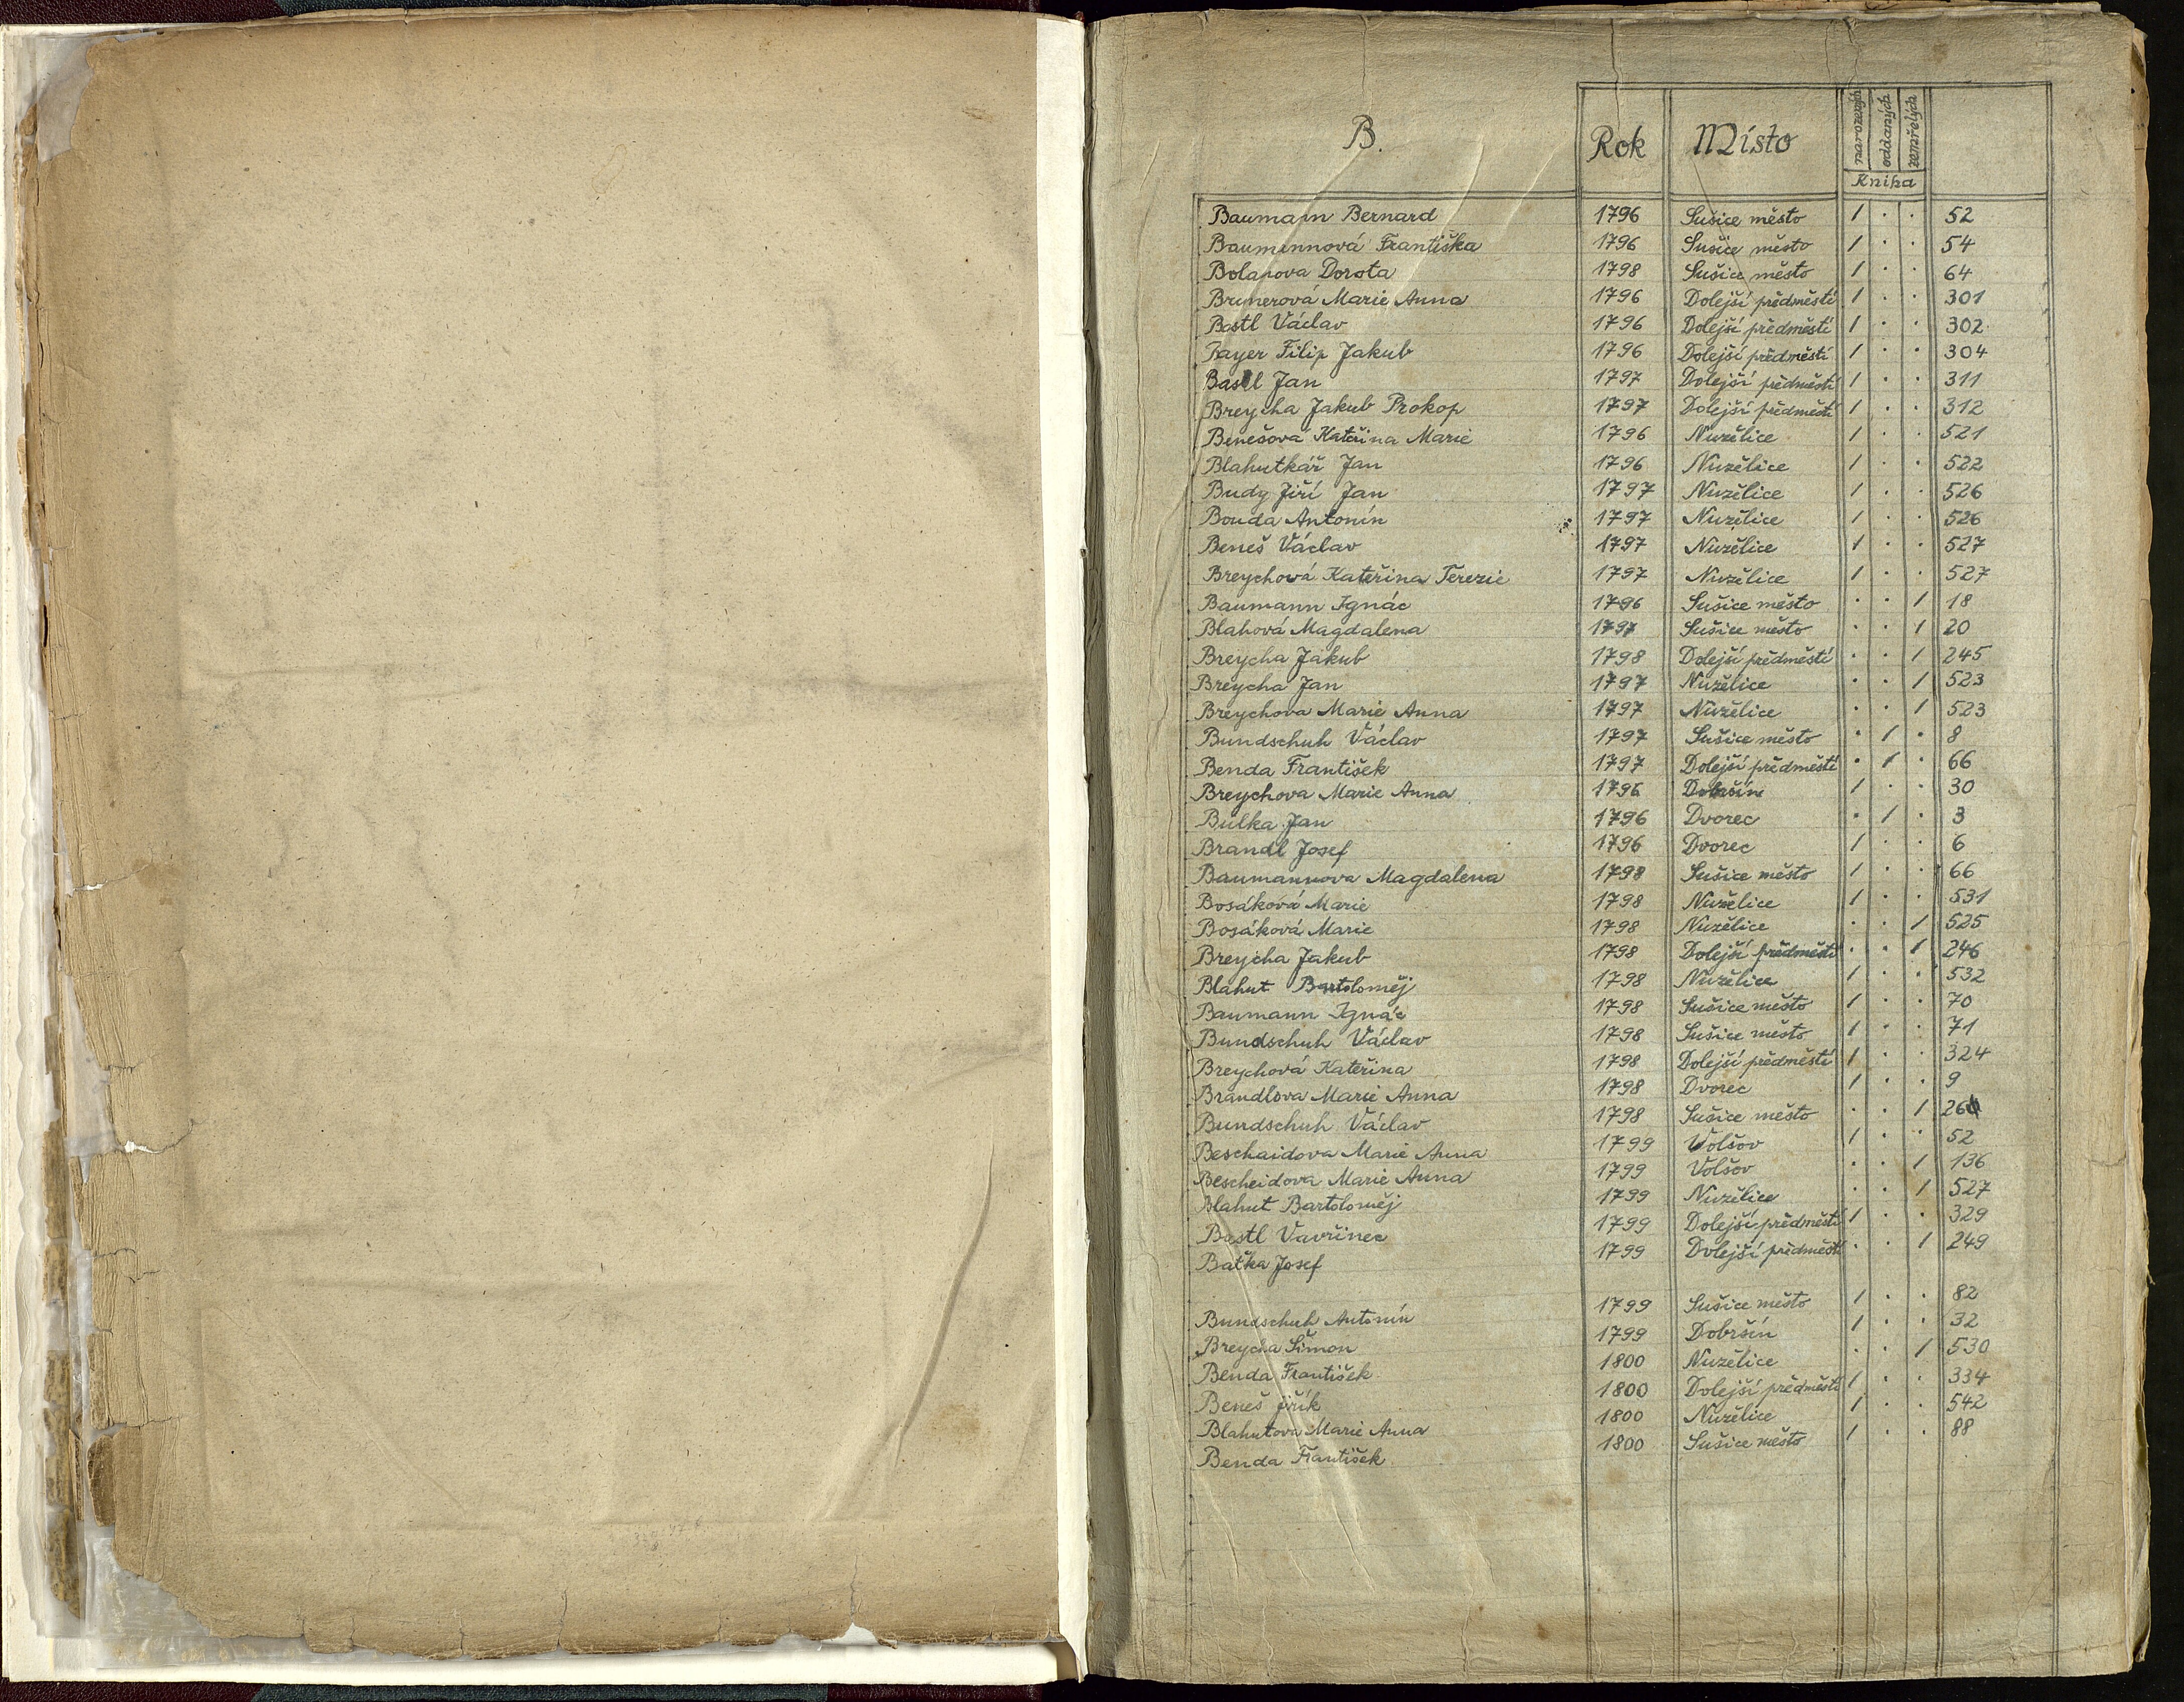 B. Rok Místo narozených oddaných zemřelých
Kniha
Baumann Bernard 1796 Sušice město / . . 52
Baumannová Františka 1796 Sušice město / . . 54
Bolanova Dorota 1798 Sušice město / . . 64
Brunerová Marie Anna 1796 Dolejší předměstí / . . 301
Bastl Václav 1796 Dolejší předměstí / . . 302
Bayer Filip Jakub 1796 Dolejší předměstí / . . 304
Bastl Jan 1797 Dolejší předměstí / . . 311
Breycha Jakub Prokop 1797 Dolejší předměstí / . . 312
Benešova Kateřina Marie 1796 Nuzělice / . . 521
Blahutkář Jan 1796 Nuzělice / . . 522
Budy Jiří Jan 1797 Nuzělice / . . 526
Bouda Antonín 1797 Nuzělice / . . 526
Beneš Václav 1797 Nuzělice / . . 527
Breychová Kateřina Terezie 1797 Nuzělice / . . 527
Baumann Ignác 1796 Sušice město . . / 18
Blahová Magdalena 1797 Sušice město . . / 20
Breycha Jakub 1798 Dolejší předměstí . . / 245
Breycha Jan 1797 Nuzělice . . / 523
Breychova Marie Anna 1797 Nuzělice . . / 523
Bundschuh Václav 1797 Sušice město . / . 8
Benda František 1797 Dolejší předměstí . / . 66
Breychova Marie Anna 1796 Dobršín / . . 30
Bulka Jan 1796 Dvorec . / . 3
Brandl Josef 1796 Dvorec / . . 6
Baumannova Magdalena 1798 Sušice město / . . 66
Bosáková Marie 1798 Nuzělice / . . 531
Bosáková Marie 1798 Nuzělice . . / 525
Breycha Jakub 1798 Dolejší předměstí . . / 246
Blahut Bartoloměj 1798 Nuzělice / . . 532
Baumann Ignác 1798 Sušice město / . . 70
Bundschuh Václav 1798 Sušice město / . . 71
Breychová Kateřina 1798 Dolejší předměstí / . . 324
Brandlova Marie Anna 1798 Dvorec / . . 9
Bundschuh Václav 1798 Sušice město . . /
Beschaidova Marie Anna 1799 Volšov / . . 52
Bescheidova Marie Anna 1799 Volšov . . / 136
Blahut Bartoloměj 1799 Nuzělice . . / 527
Bastl Vavřinec 1799 Dolejší předměstí / . . 329
Baťka Josef 1799 Dolejší předměstí . . / 249
Bundschuh Antonín 1799 Sušice město / . . 82
Breycha Šimon 1799 Dobršín / . . 32
Benda František 1800 Nuzělice . . / 530
Beneš Jiřík 1800 Dolejší předměstí / . . 334
Blahutova Marie Anna 1800 Nuzělice / . . 542
Benda František 1800 Sušice město / . . 88